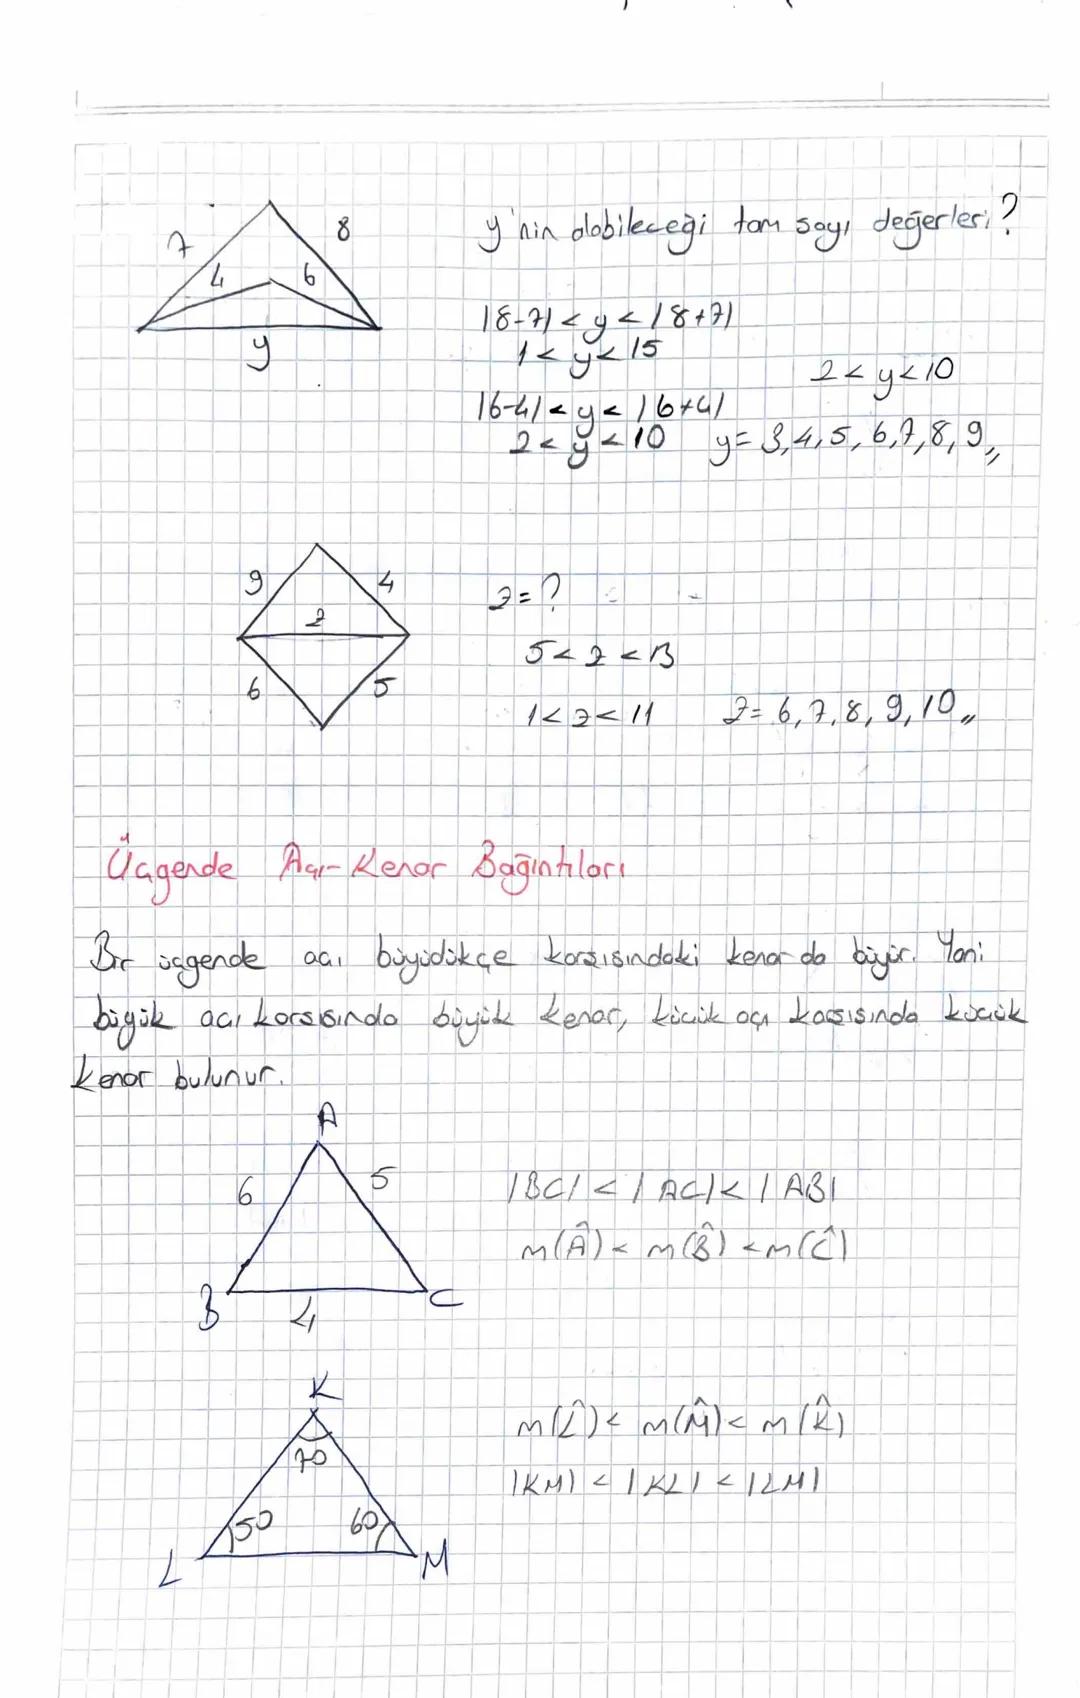 7
8
4
6
y
y'nin alabileceği tam sayı değerleri?
|8-7| < y < |8+7|
1 < y < 15
2 < y < 10
|6-4| < y < |6+4|
2 < y < 10 y = 3,4,5,6,7,8,9,,
9
4
z
6
5
z = ?
5 < z < 13
1 < z < 11 z = 6,7,8,9,10,,
Üçgende Açı-Kenar Bağıntıları
Bir üçgende açı büyüdükçe karşısındaki kenar da büyür. Yani
büyük açı karşısında büyük kenar, küçük açı karşısında küçük
kenar bulunur.
A
6
5
B
4
C
|BC| < |AC| < |AB|
m(Â) < m(B̂) < m(Ĉ)
K
70
50
60
L
M
m(L̂) < m(M̂) < m(K̂)
|KM| < |KL| < |LM|